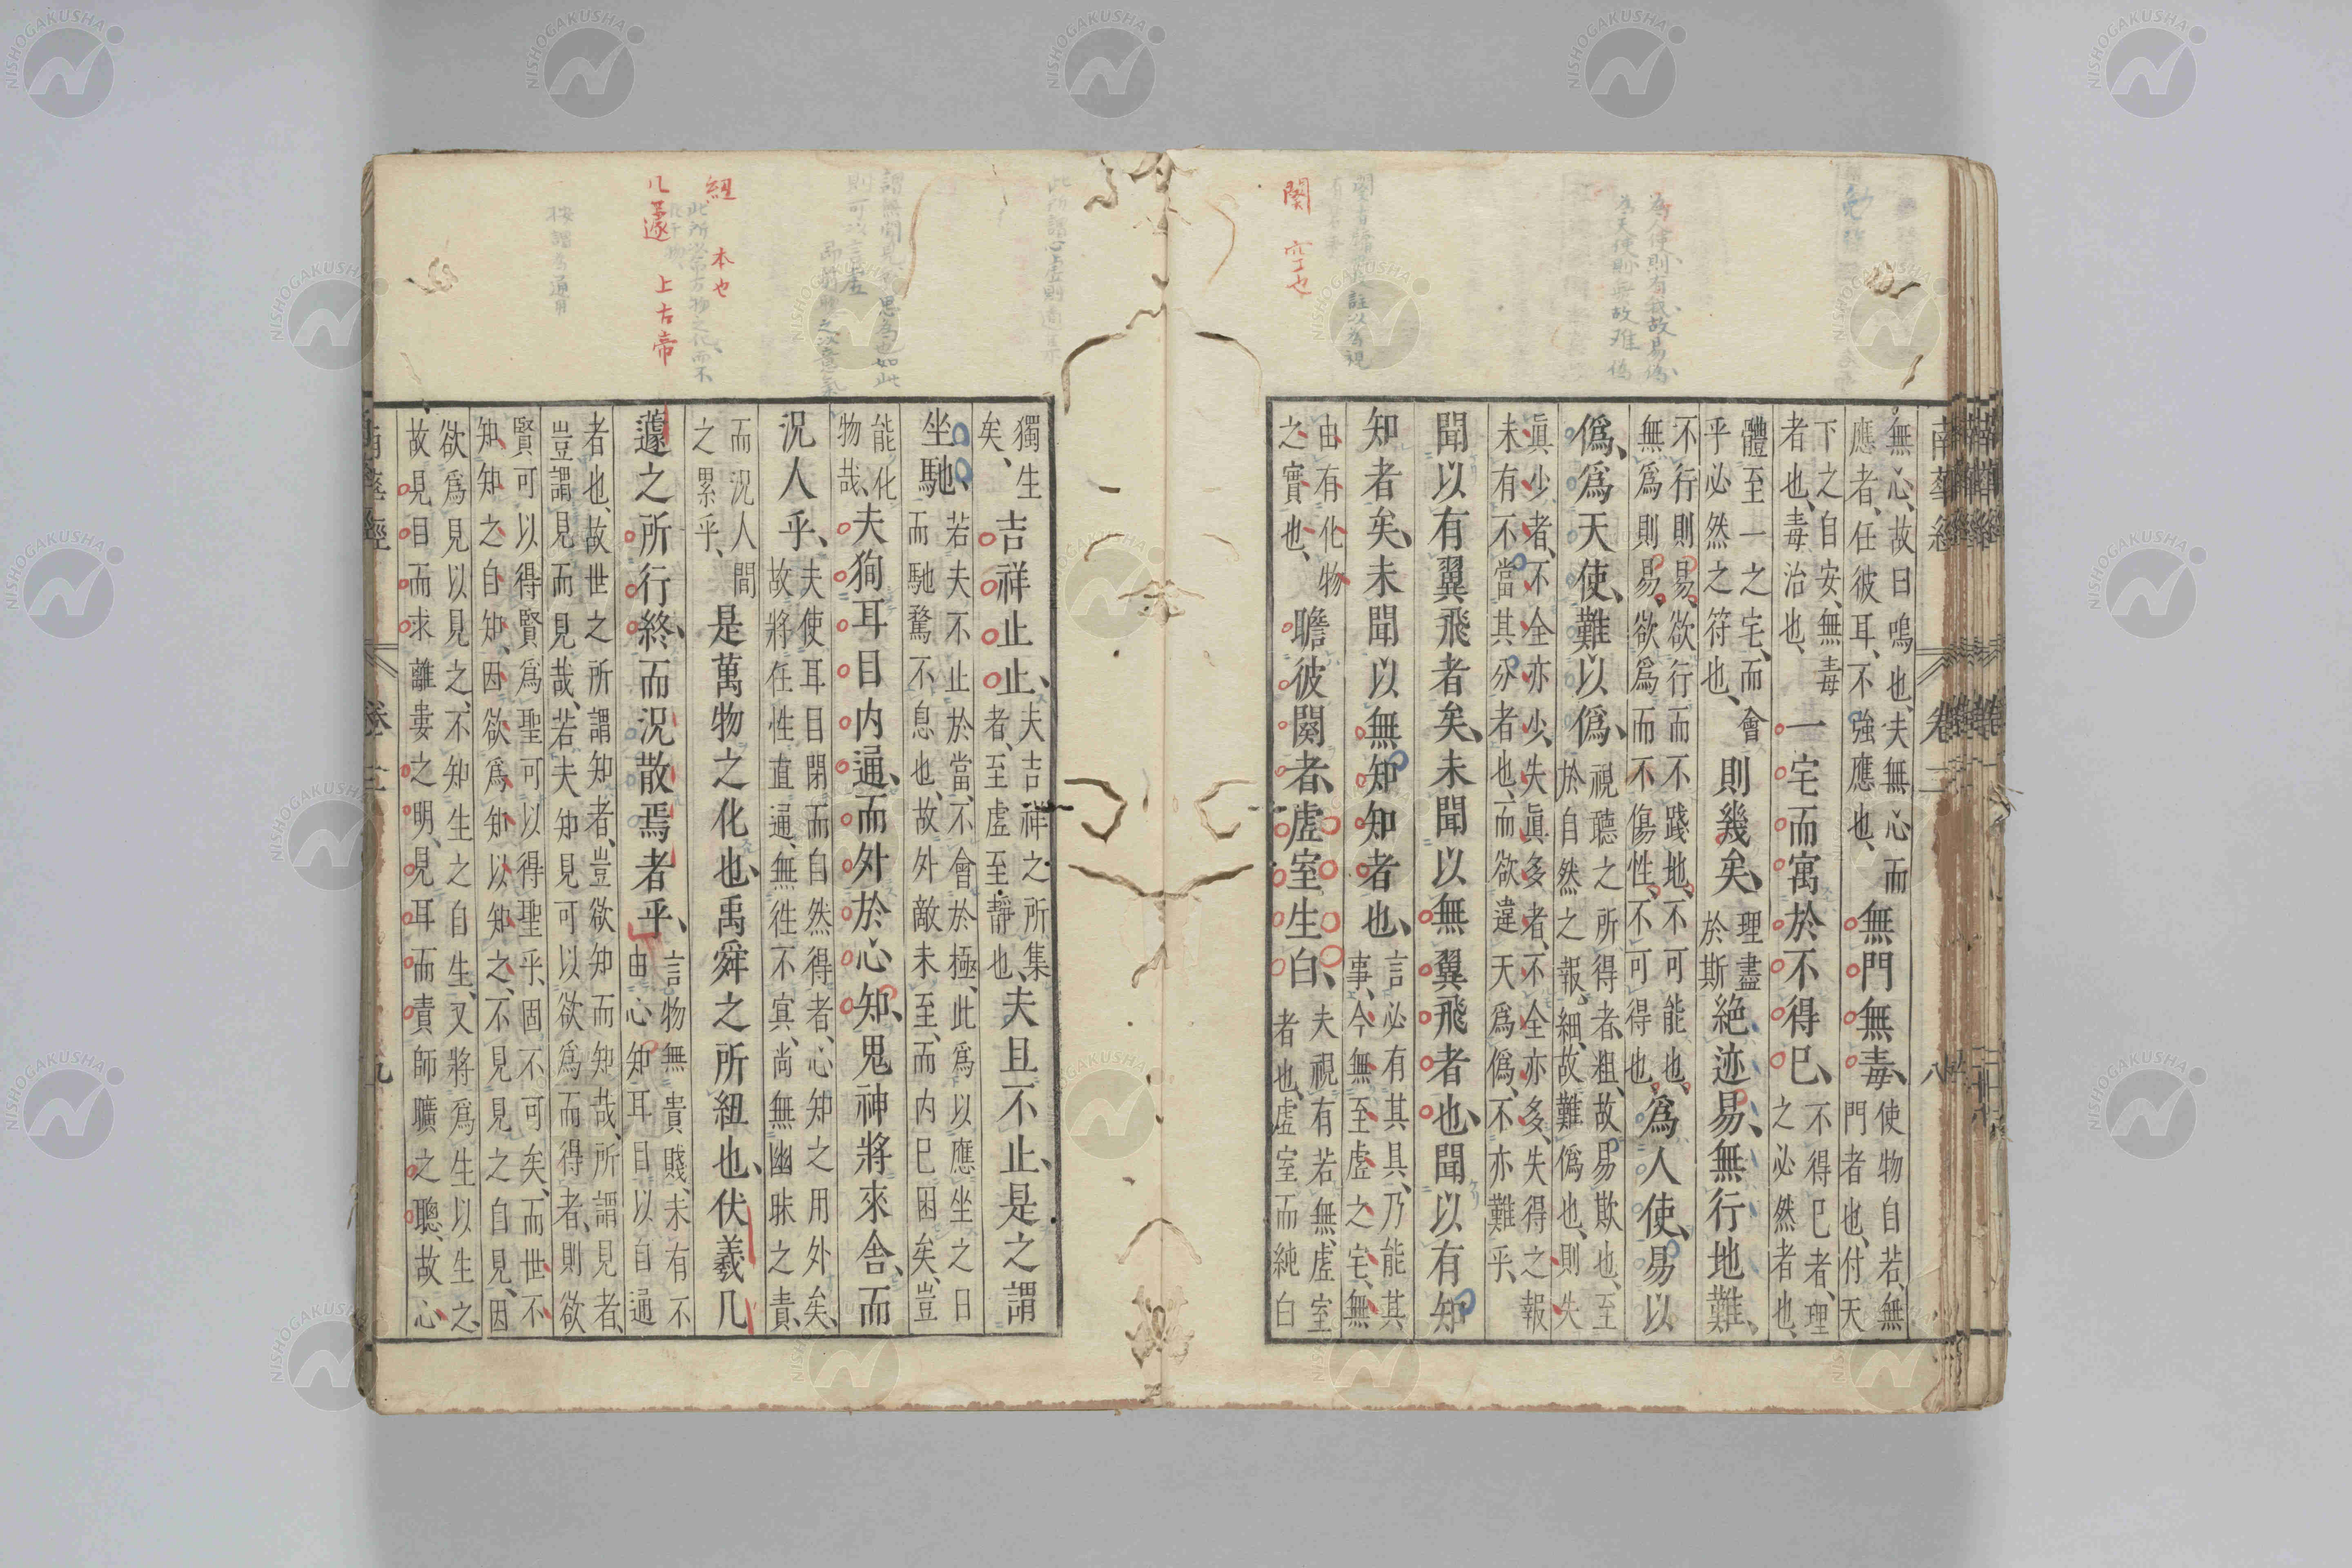 南華經 卷二 八
無心、故曰鳴也、夫無心而
應者、任彼耳、不強應也、
無門無毒、
使物自若、無
門者也、付天
下之自安、無毒
者也、毒治也、
一宅而寓於不得已、
不得已者、理
之必然者也、
體至一之宅、而會
乎必然之符也、
則幾矣、
理盡
於斯
絶迹易、無行地難、
不行則易、欲行而不踐地、不可能也、
無爲則易、欲爲而不傷性、不可得也、
爲人使、易以
僞、爲天使、難以僞、
視聽之所得者粗、故易欺也、至
於自然之報細、故難僞也、則失
眞少者、不全亦少、失眞多者、不全亦多、失得之報
未有不當其分者也、而欲違天爲僞、不亦難乎、
聞以有翼飛者矣、未聞以無翼飛者也、聞以有知
知者矣、未聞以無知知者也、
言必有其具、乃能其
事、今無至虛之宅、無
由有化物
之實也、
瞻彼闋者、虛室生白、
夫視有若無、虛室
者也、虛室而純白
闋 空也
爲人使則有我故易僞
爲天使則無故難僞
獨生
矣、
吉祥止止、
夫吉祥之所集
者、至虛至靜也、
夫且不止、是之謂
坐馳、
若夫不止於當、不會於極、此爲以應坐之日
而馳騖不息也、故外敵未至、而内已困矣、豈
能化
物哉、
夫狥耳目内通、而外於心知、鬼神將來舍、而
況人乎、
夫使耳目閉而自然得者、心知之用外矣、
故將任性直通、無往不寘、尚無幽昧之責、
而況人間
之累乎、
是萬物之化也、禹舜之所紐也、伏羲几
蘧之所行終、而況散焉者乎、
言物無貴賤、未有不
由心知耳目以自通
者也、故世之所謂知者、豈欲知而知哉、所謂見者、
豈謂見而見哉、若夫知見可以欲爲而得者、則欲
賢可以得賢、爲聖可以得聖乎、固不可矣、而世不
知知之自知、因欲爲知以知之、不見見之自見、因
欲爲見以見之、不知生之自生、又將爲生以生之、
故見目而求離婁之明、見耳而責師曠之聰、故心
紐 本也
几蘧 上古帝
南華經 卷二 九